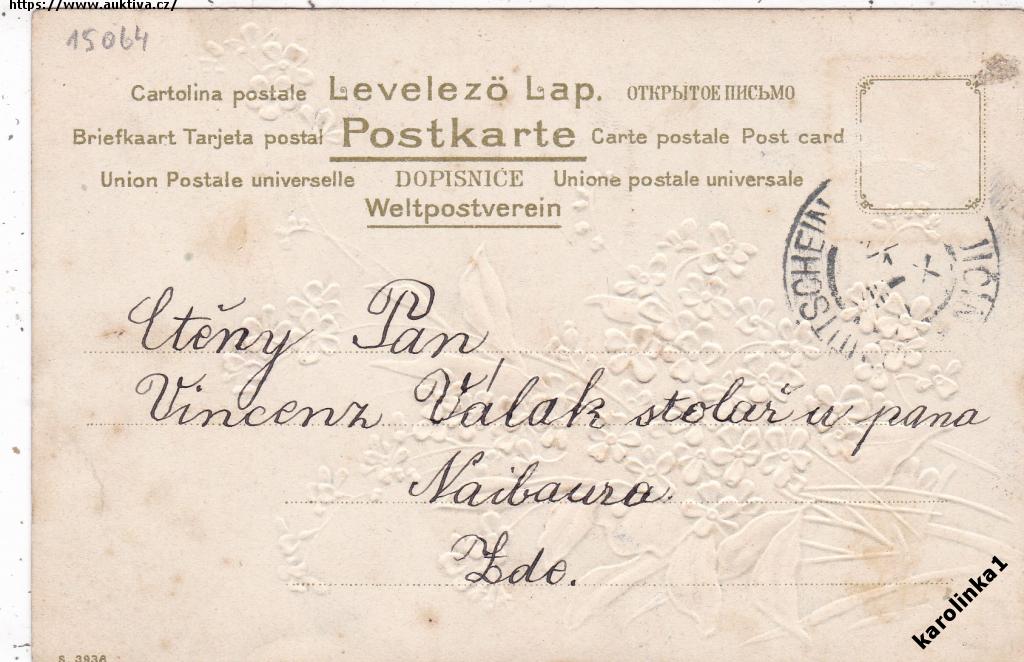 https://www.auktiva.cz/
15064
Cartolina postale Levelező Lap. ОТКРЫТОЕ ПИСЬМО
Briefkaart Tarjeta postal Postkarte Carte postale Post card
Union Postale universelle DOPISNICE Unione postale universale
Weltpostverein
Ctěny Pan
Vincenz Válak stolař u pana
Naibaura
Zde.
S. 3936
karolinka1